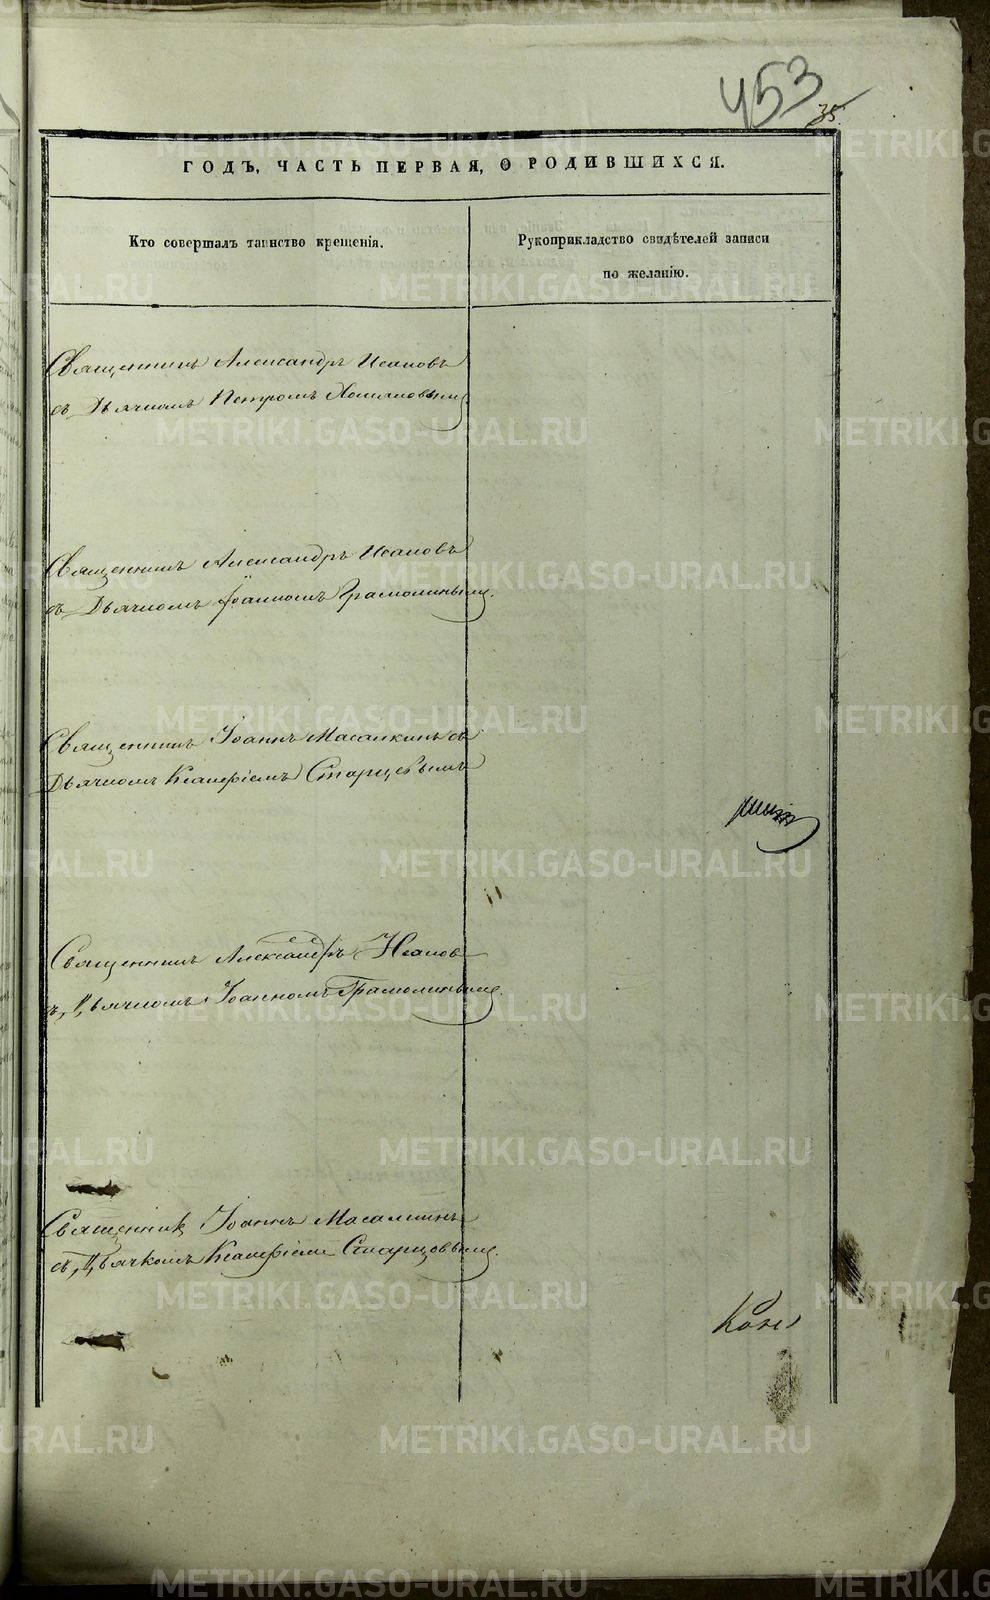 453
35.
ГОДЪ, ЧАСТЬ ПЕРВАЯ, О РОДИВШИХСЯ.
Кто совершалъ таинство крещенія.
Рукоприкладство свидѣтелей записи
по желанію.
Священникъ Александръ Исаковъ
съ Дьячкомъ Петромъ Хомяковымъ
Священникъ Александръ Исаковъ
съ Дьячкомъ Іоанномъ Грамолинымъ.
Священникъ Іоаннъ Масалкинъ съ
Дьячкомъ Ксанфіемъ Старцевымъ
Священникъ Александръ Исаков
ъ, Дьячкомъ Іоанномъ Грамолинымъ.
Священник Іоаннъ Масалкинъ
съ, Дьячкомъ Ксанфіемъ Старцовымъ.
METRIKI.GASO-URAL.RU